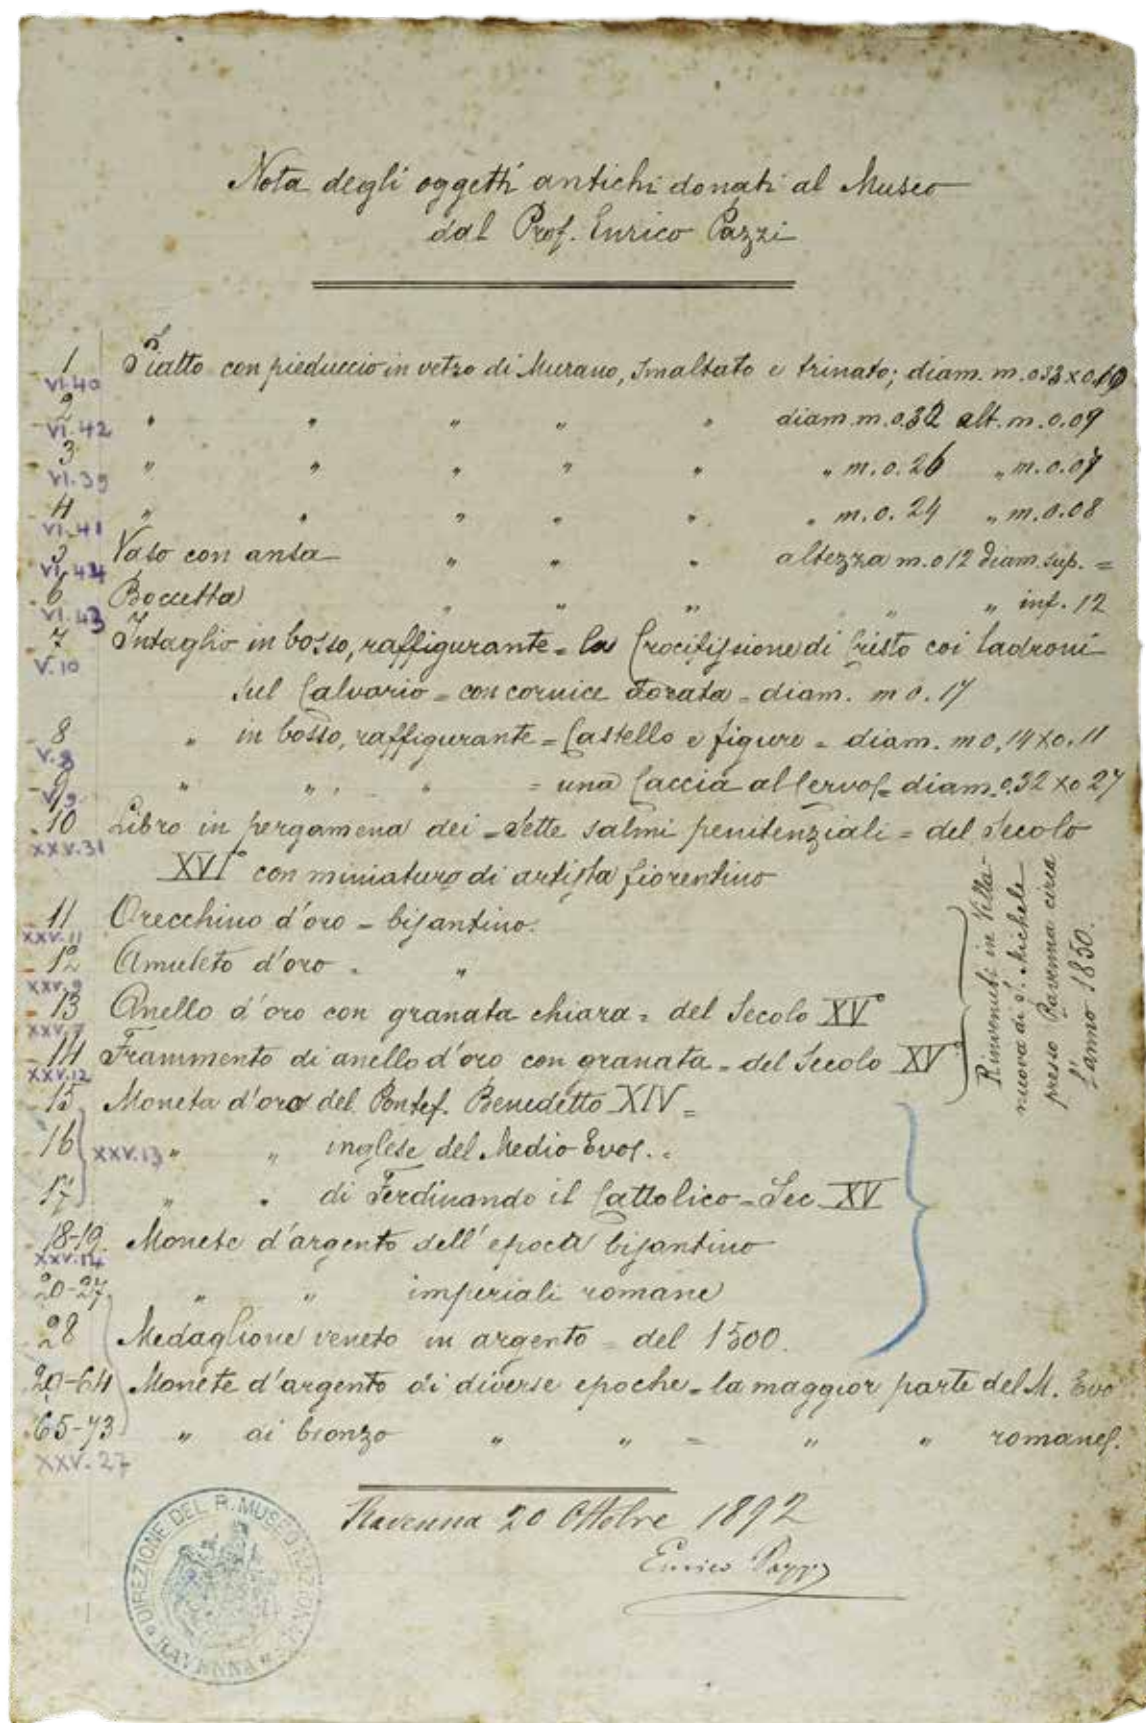 Nota degli oggetti antichi donati al Museo
dal Prof. Enrico Pazzi
1 Piatto con pieduccio in vetro di Murano, smaltato e trinato; diam. m. 0.33 x 0.10
VI.40
2 " " " " " diam. m. 0.32 alt. m. 0.09
VI.42
3 " " " " " " m. 0.26 " m. 0.07
VI.39
4 " " " " " " m. 0.24 " m. 0.08
VI.41
5 Vaso con ansa " " " altezza m. 0 12 diam. sup. =
VI.44
6 Boccetta " " " " " inf. 12
VI.43
7 Intaglio in bosso, raffigurante = la Crocifissione di Cristo coi ladroni
V.10
sul Calvario = con cornice dorata = diam. m 0.17
8 " in bosso, raffigurante = Castello e figure = diam. m 0,14 x 0.11
V.8
9 " " " = una Caccia al Cervo = diam. 0.32 x 0 27
V.9
10 Libro in pergamena dei = Sette salmi penitenziali = del Secolo
XXV.31
XVI° con miniature di artista fiorentino
11 Orecchino d'oro = bizantino.
XXV.11
12 Amuleto d'oro = "
XXV.9
13 Anello d'oro con granata chiara = del Secolo XV°
XXV.7
14 Frammento di anello d'oro con granata = del Secolo XV°
XXV.12
Rinvenuti in Villa-
nuova di S. Michele
presso Ravenna circa
l'anno 1850.
15 Moneta d'oro del Pontef. Benedetto XIV =
16 " " inglese del Medio Evo.
XXV.13
17 " " di Ferdinando il Cattolico = Sec XV
18-19 Monete d'argento dell'epoca bizantino
XXV.14
20-27 " " imperiali romane
28 Medaglione veneto in argento = del 1500.
29-64 Monete d'argento di diverse epoche = la maggior parte del M. Evo
65-73 " di bronzo " " = " " romane.
XXV.27
Ravenna 20 Ottobre 1892
Enrico Pazzi
DIREZIONE DEL R. MUSEO NAZION.
RAVENNA